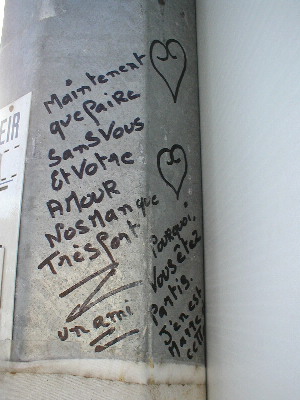 EIR
Maintenent
que faire
Sans Vous
Et Votre
AMOUR
Nos Manque
Très Fort
un ami
Pourquoi,
Vous êtez
Partis.
J'en est
Marre